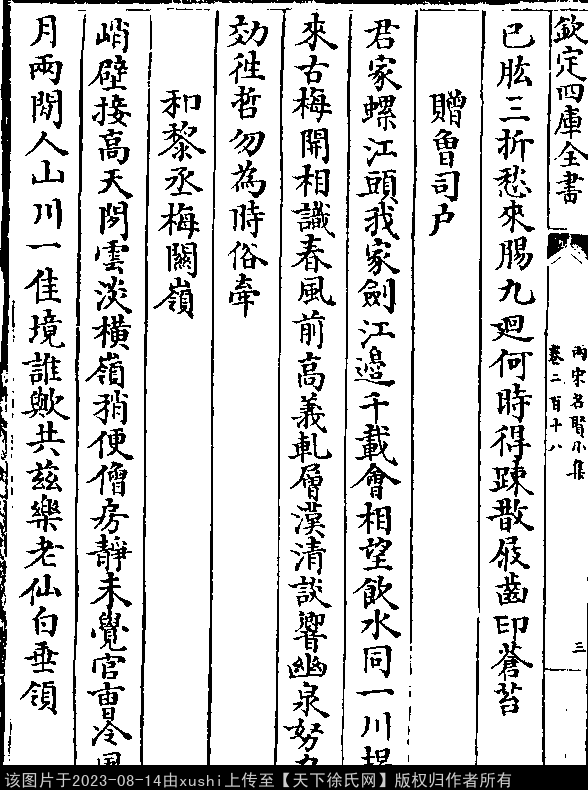 欽定四庫全書
兩宋名賢小集
卷二百十八
三
已肱三折愁來腸九廻何時得踈散屐齒印蒼苔
贈魯司户
君家螺江頭我家劍江邊千載會相望飲水同一川
來古梅開相識春風前高義軋層漢清談響幽泉努
効徃哲勿為時俗牽
和黎丞梅關嶺
峭壁接高天閉雲淡橫嶺稍便僧房靜未覺官曺冷
月兩閒人山川一佳境誰歟共兹樂老仙白垂領
该图片于2023-08-14由xushi上传至【天下徐氏网】版权归作者所有